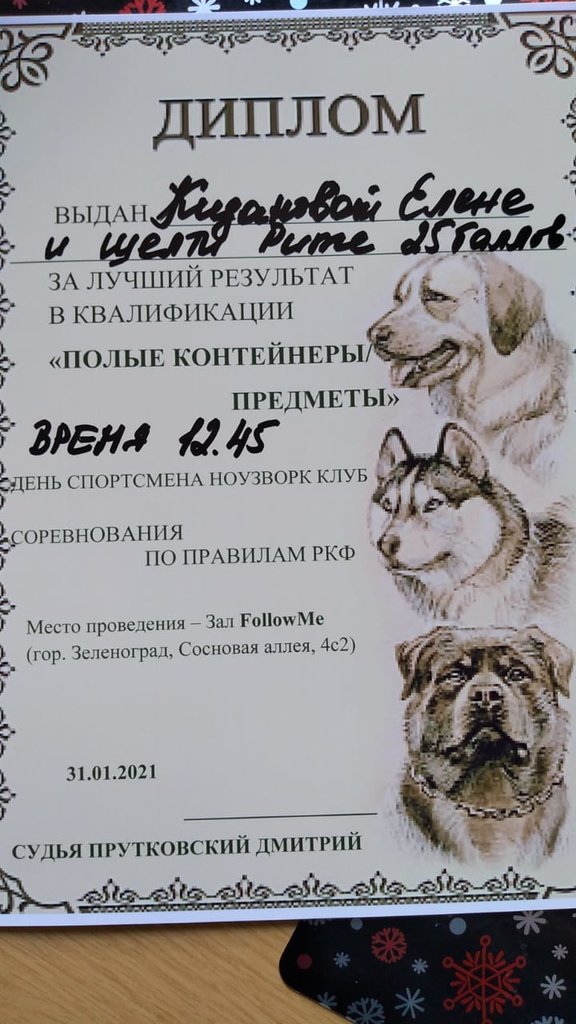 ДИПЛОМ
ВЫДАН Кизановой Елене
и шелти Рите 25 баллов
ЗА ЛУЧШИЙ РЕЗУЛЬТАТ
В КВАЛИФИКАЦИИ
«ПОЛЫЕ КОНТЕЙНЕРЫ/
ПРЕДМЕТЫ»
ВРЕМЯ 12.45
ДЕНЬ СПОРТСМЕНА НОУЗВОРК КЛУБ
СОРЕВНОВАНИЯ
ПО ПРАВИЛАМ РКФ
Место проведения – Зал FollowMe
(гор. Зеленоград, Сосновая аллея, 4с2)
31.01.2021
СУДЬЯ ПРУТКОВСКИЙ ДМИТРИЙ